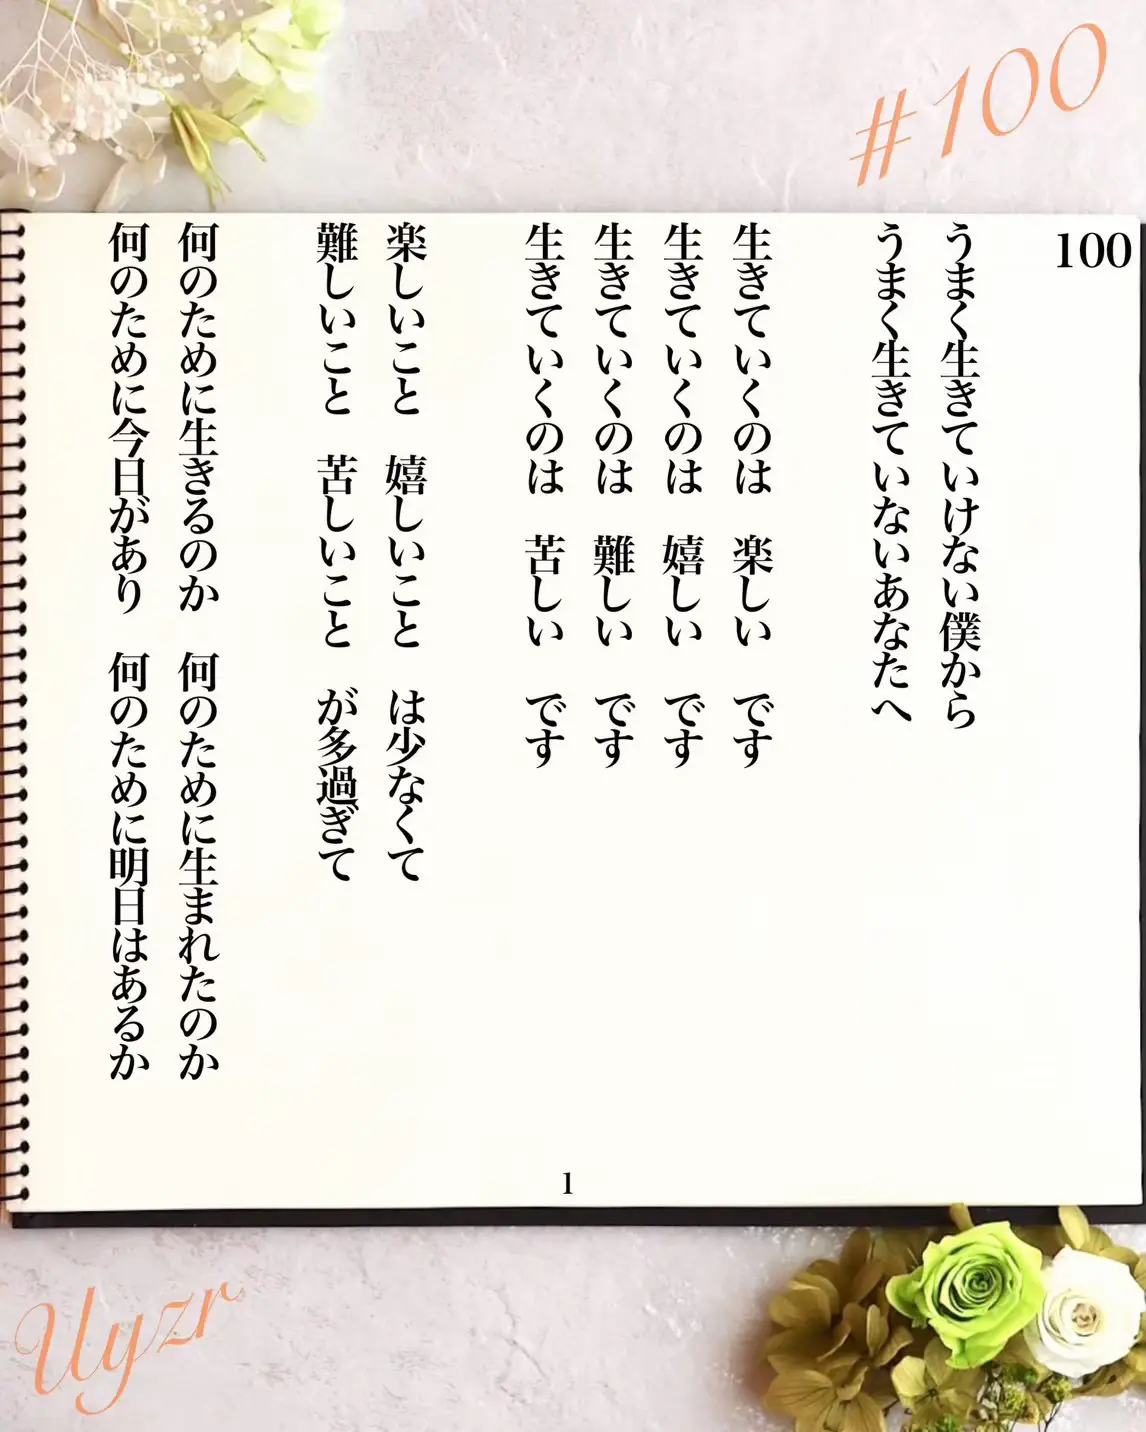 #100
100
うまく生きていけない僕から
うまく生きていないあなたへ
生きていくのは　楽しい　です
生きていくのは　嬉しい　です
生きていくのは　難しい　です
生きていくのは　苦しい　です
楽しいこと　嬉しいこと　は少なくて
難しいこと　苦しいこと　が多過ぎて
何のために生きるのか　何のために生まれたのか
何のために今日があり　何のために明日はあるか
1
Uyzr